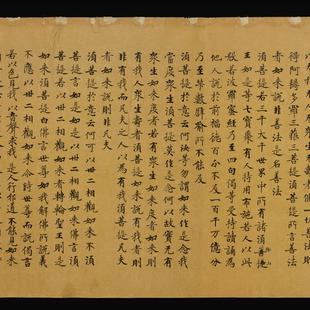 得阿耨多羅三藐三菩提須菩提所言善法
者如來說非善法是名善法
須菩提若三千大千世界中所有諸須弥山
王如是等七寶聚有人持用布施若人以此
般若波羅蜜經乃至四句偈等受持讀誦為
他人說於前福德百分不及一百千万億分
乃至筭數譬喻所不能及
須菩提於意云何汝等勿謂如來作是念我
當度衆生須菩提莫作是念何以故實无有
衆生如來度者若有衆生如來度者如來則
有我人衆生壽者須菩提如來說有我者則
非有我而凡夫之人以為有我須菩提凡夫
者如來說則非凡夫
須菩提於意云何可以卅二相觀如來不須
菩提言如是如是以卅二相觀如來佛言須
菩提若以卅二相觀如來者轉輪聖王則是
如來須菩提白佛言世尊如我解佛所說義
不應以卅二相觀如來尒時世尊而說偈言
若以色見我以音聲求我是人行邪道不能見如來